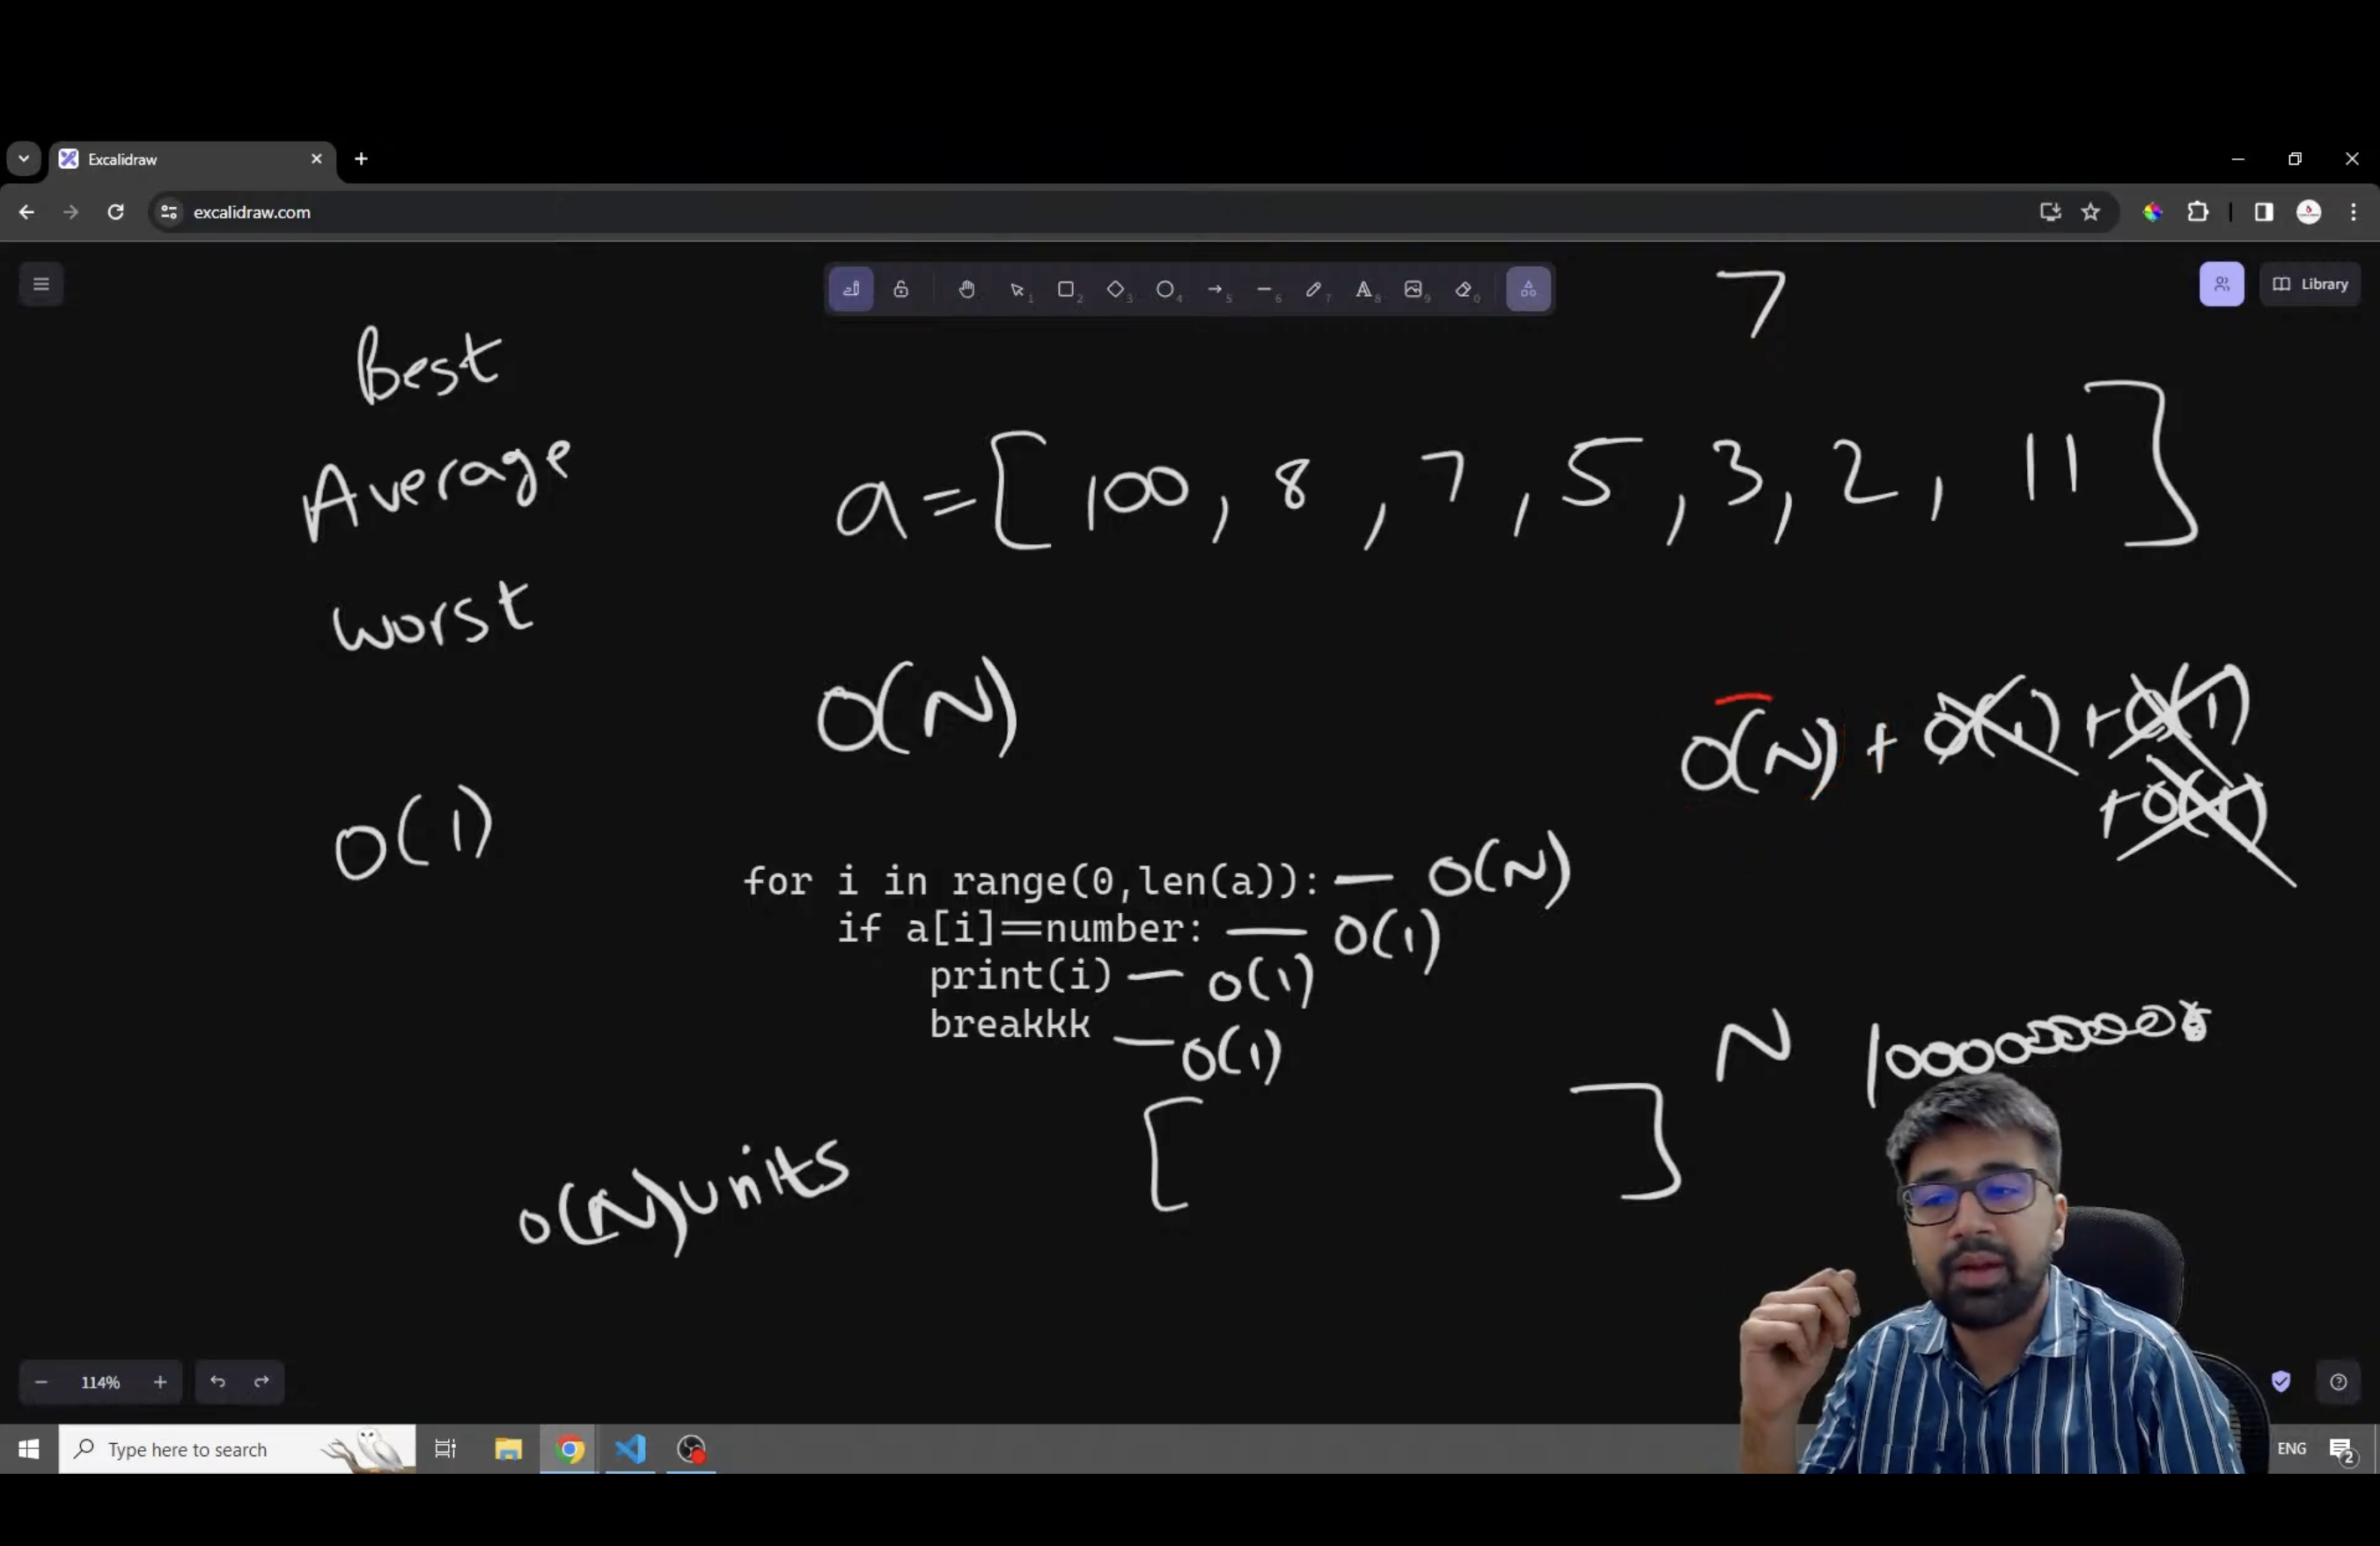 Excalidraw
excalidraw.com
1 2 3 4 5 6 7 8 9 0
Library
7
Best
Average
a=[100, 8, 7, 5, 3, 2, 11]
worst
O(N)
O(N) + O(1) + O(1)
+ O(1)
O(1)
for i in range(0,len(a)): — O(N)
if a[i]==number: — O(1)
print(i) — O(1)
breakkk — O(1)
N
[ ]
O(N) units
114%
Type here to search
ENG
2